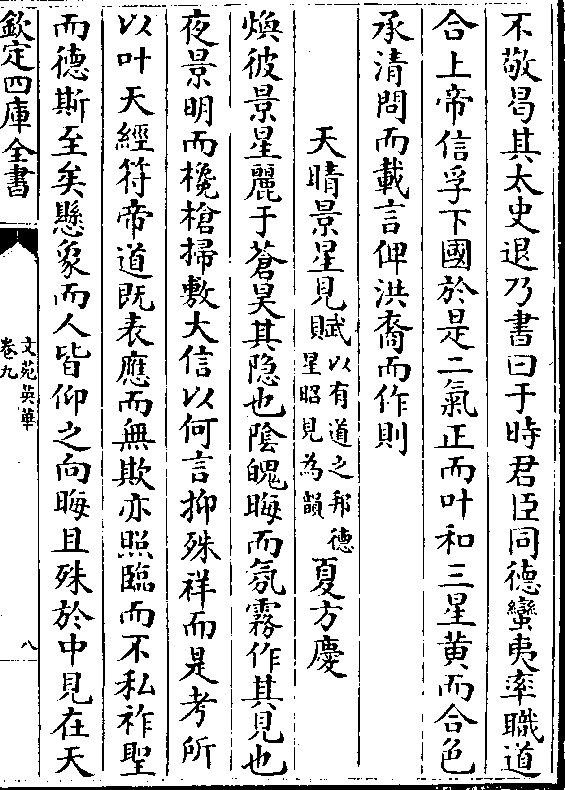 不敬曷其太史退乃書曰于時君臣同德蠻夷率職道
合上帝信孚下國於是二氣正而叶和三星黄而合色
承清問而載言俾洪裔而作則
天晴景星見賦以有道之邦德星昭見為韻夏方慶
煥彼景星麗于蒼昊其隐也陰魄晦而氛霧作其見也
夜景明而欃槍掃敷大信以何言抑殊祥而是考所
以叶天經符帝道既表應而無欺亦照臨而不私祚聖
而德斯至矣懸象而人皆仰之向晦且殊於中見在天
欽定四庫全書
文苑英華
卷九
八